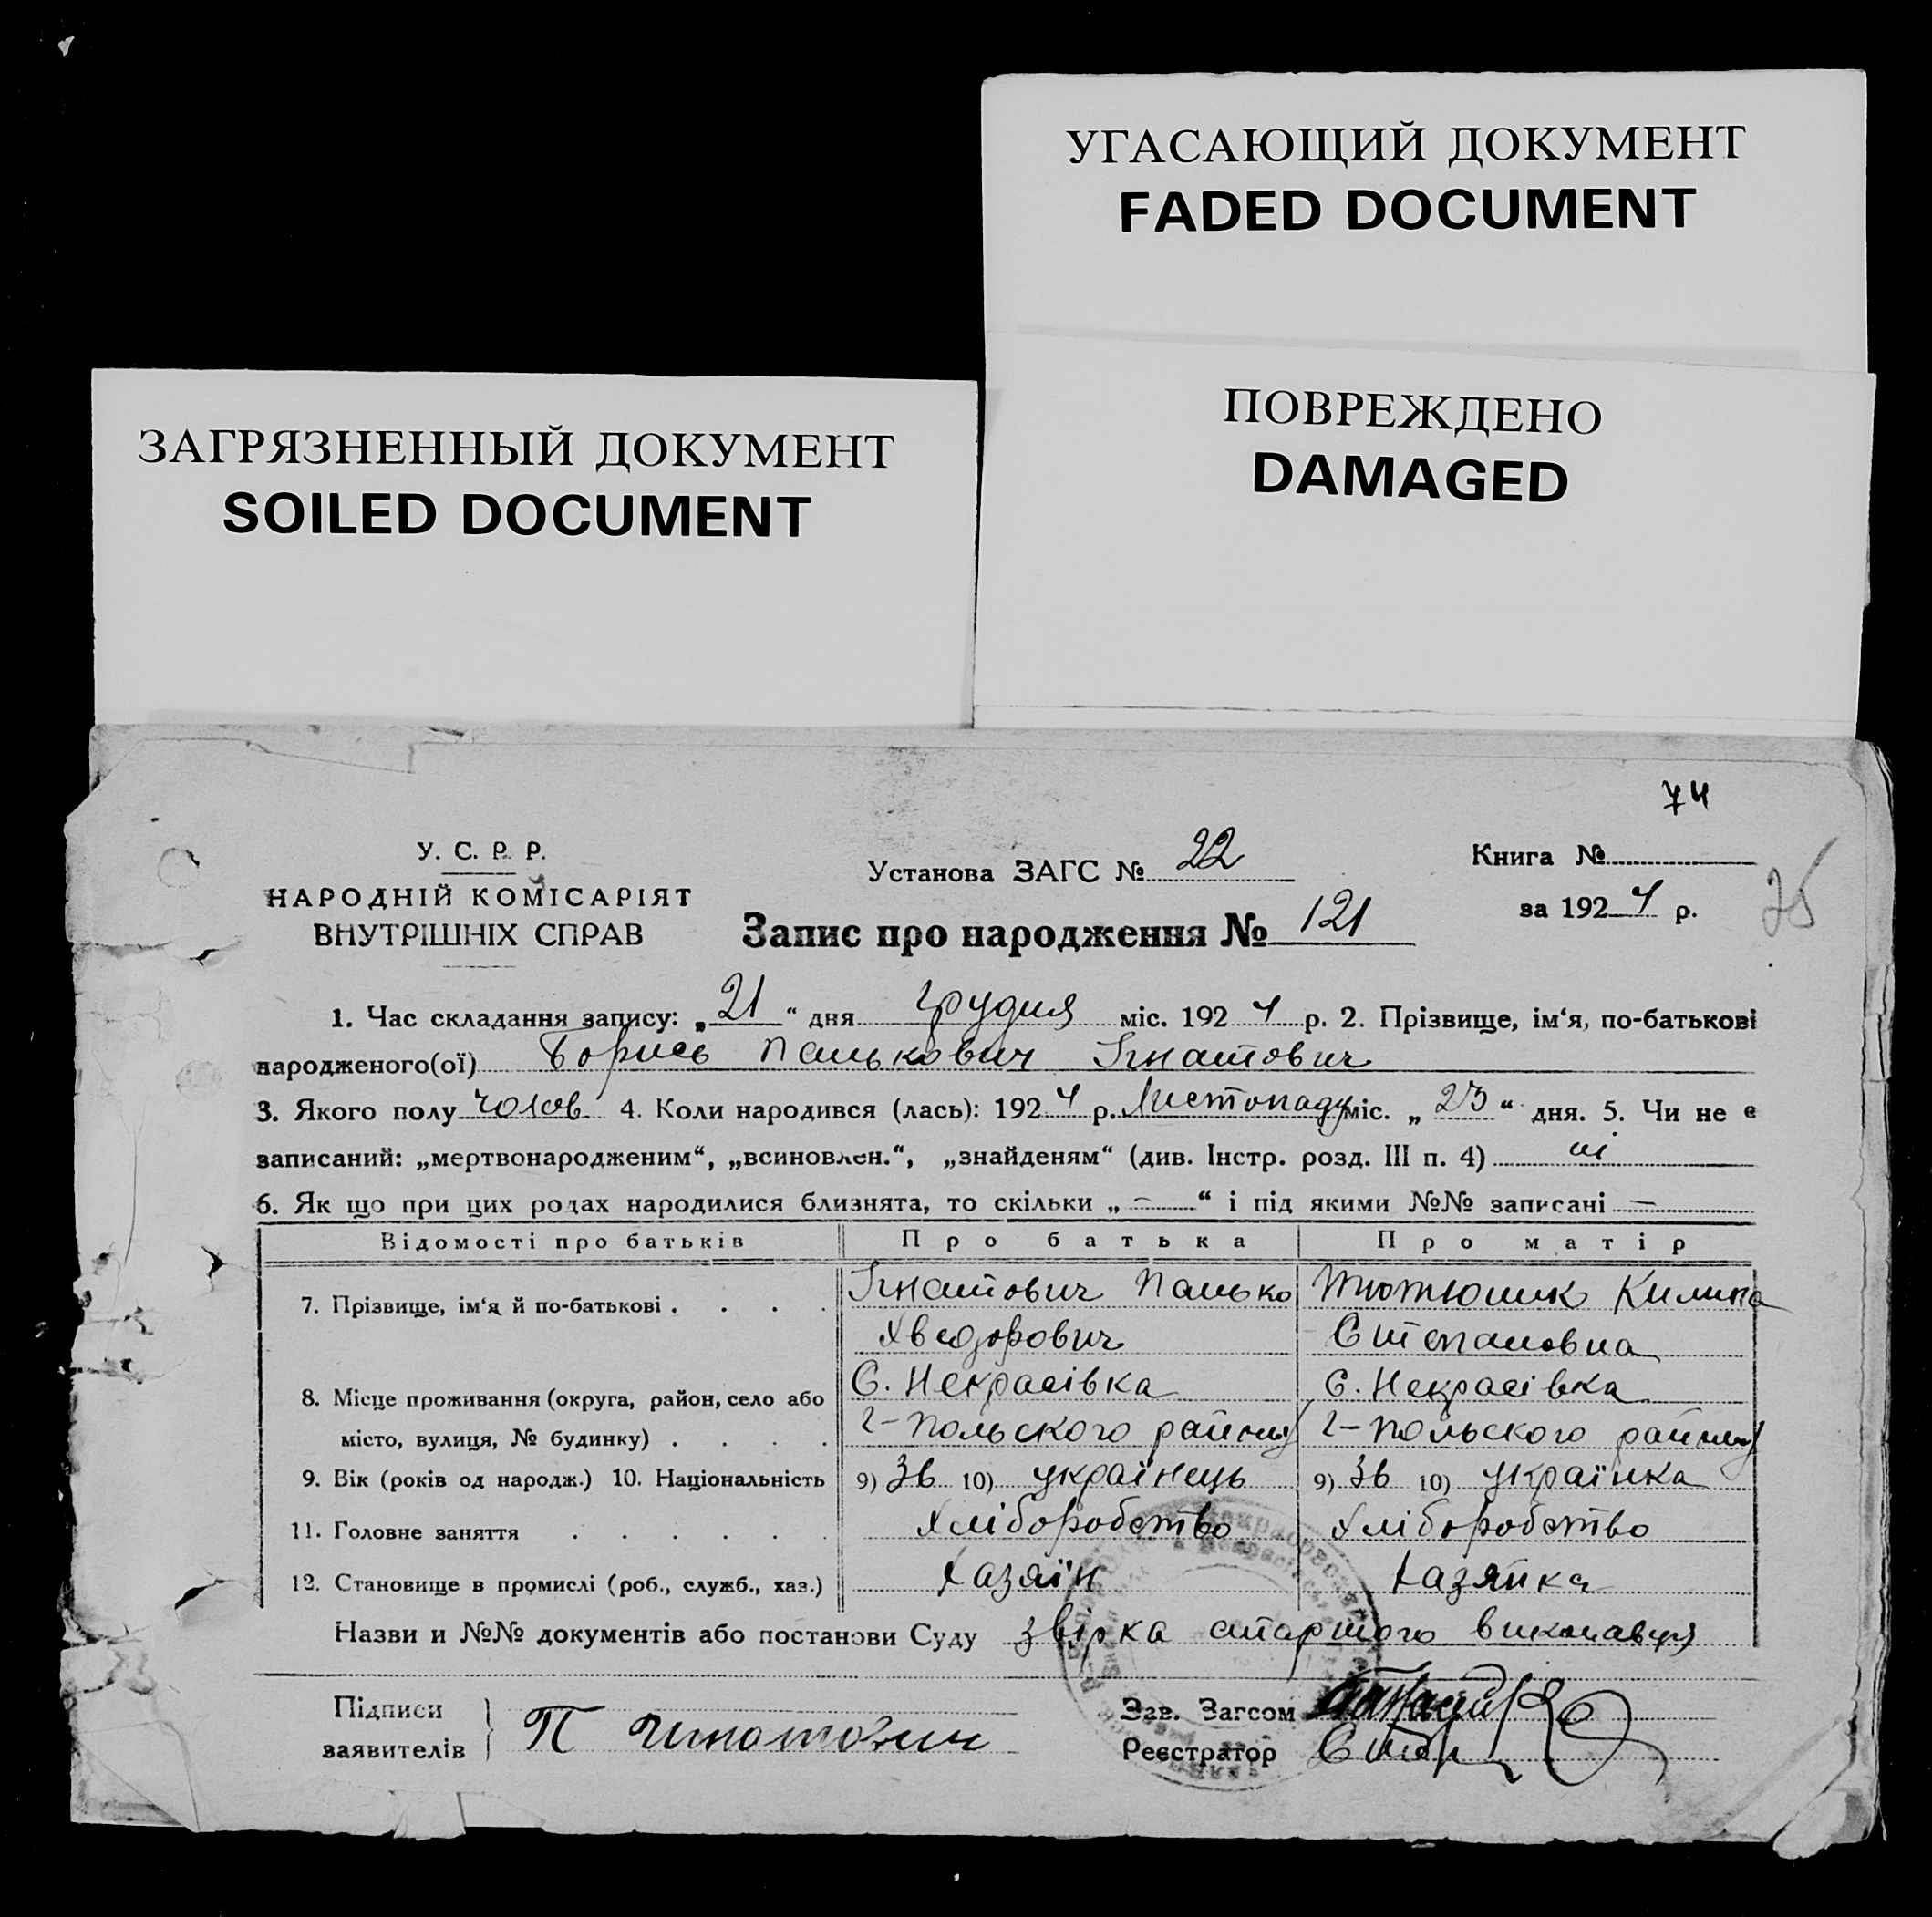 УГАСАЮЩИЙ ДОКУМЕНТ
FADED DOCUMENT
ПОВРЕЖДЕНО
DAMAGED
ЗАГРЯЗНЕННЫЙ ДОКУМЕНТ
SOILED DOCUMENT
74
75
У. С. Р. Р.
НАРОДНІЙ КОМІСАРІЯТ
ВНУТРІШНІХ СПРАВ
Установа ЗАГС № 22
Запис про народження № 121
Книга №
за 1924 р.
1. Час складання запису: „21“ дня грудня міс. 1924 р. 2. Прізвище, ім‘я, по-батькові
народженого(ої) Борись Панькович Ігнатович
3. Якого полу чолов 4. Коли народився (лась): 1924 р. Листопаду міс. „23“ дня. 5. Чи не є
записаний: „мертвонародженим“, „всиновлен.“, „знайденям“ (див. Інстр. розд. III п. 4) ні
6. Як що при цих родах народилися близнята, то скільки „—“ і під якими №№ записані —
Відомості про батьків Про батька Про матір
7. Прізвище, ім‘я й по-батькові . . . . Ігнатович Панько Тютюник Килина
Хведорович Степановна
8. Місце проживання (округа, район, село або С. Некрасівка С. Некрасівка
місто, вулиця, № будинку) . . . . г-польского району г-польского району
9. Вік (років од народж.) 10. Національність 9) 36 10) українець 9) 36 10) українка
11. Головне заняття . . . . . . Хліборобство Хліборобство
12. Становище в промислі (роб., служб., хаз.) Хазяїн Хазяйка
Назви и №№ документів або постанови Суду звірка старшого виконавця
Підписи
заявителів П Игнатович
Зав. Загсом
Реєстратор